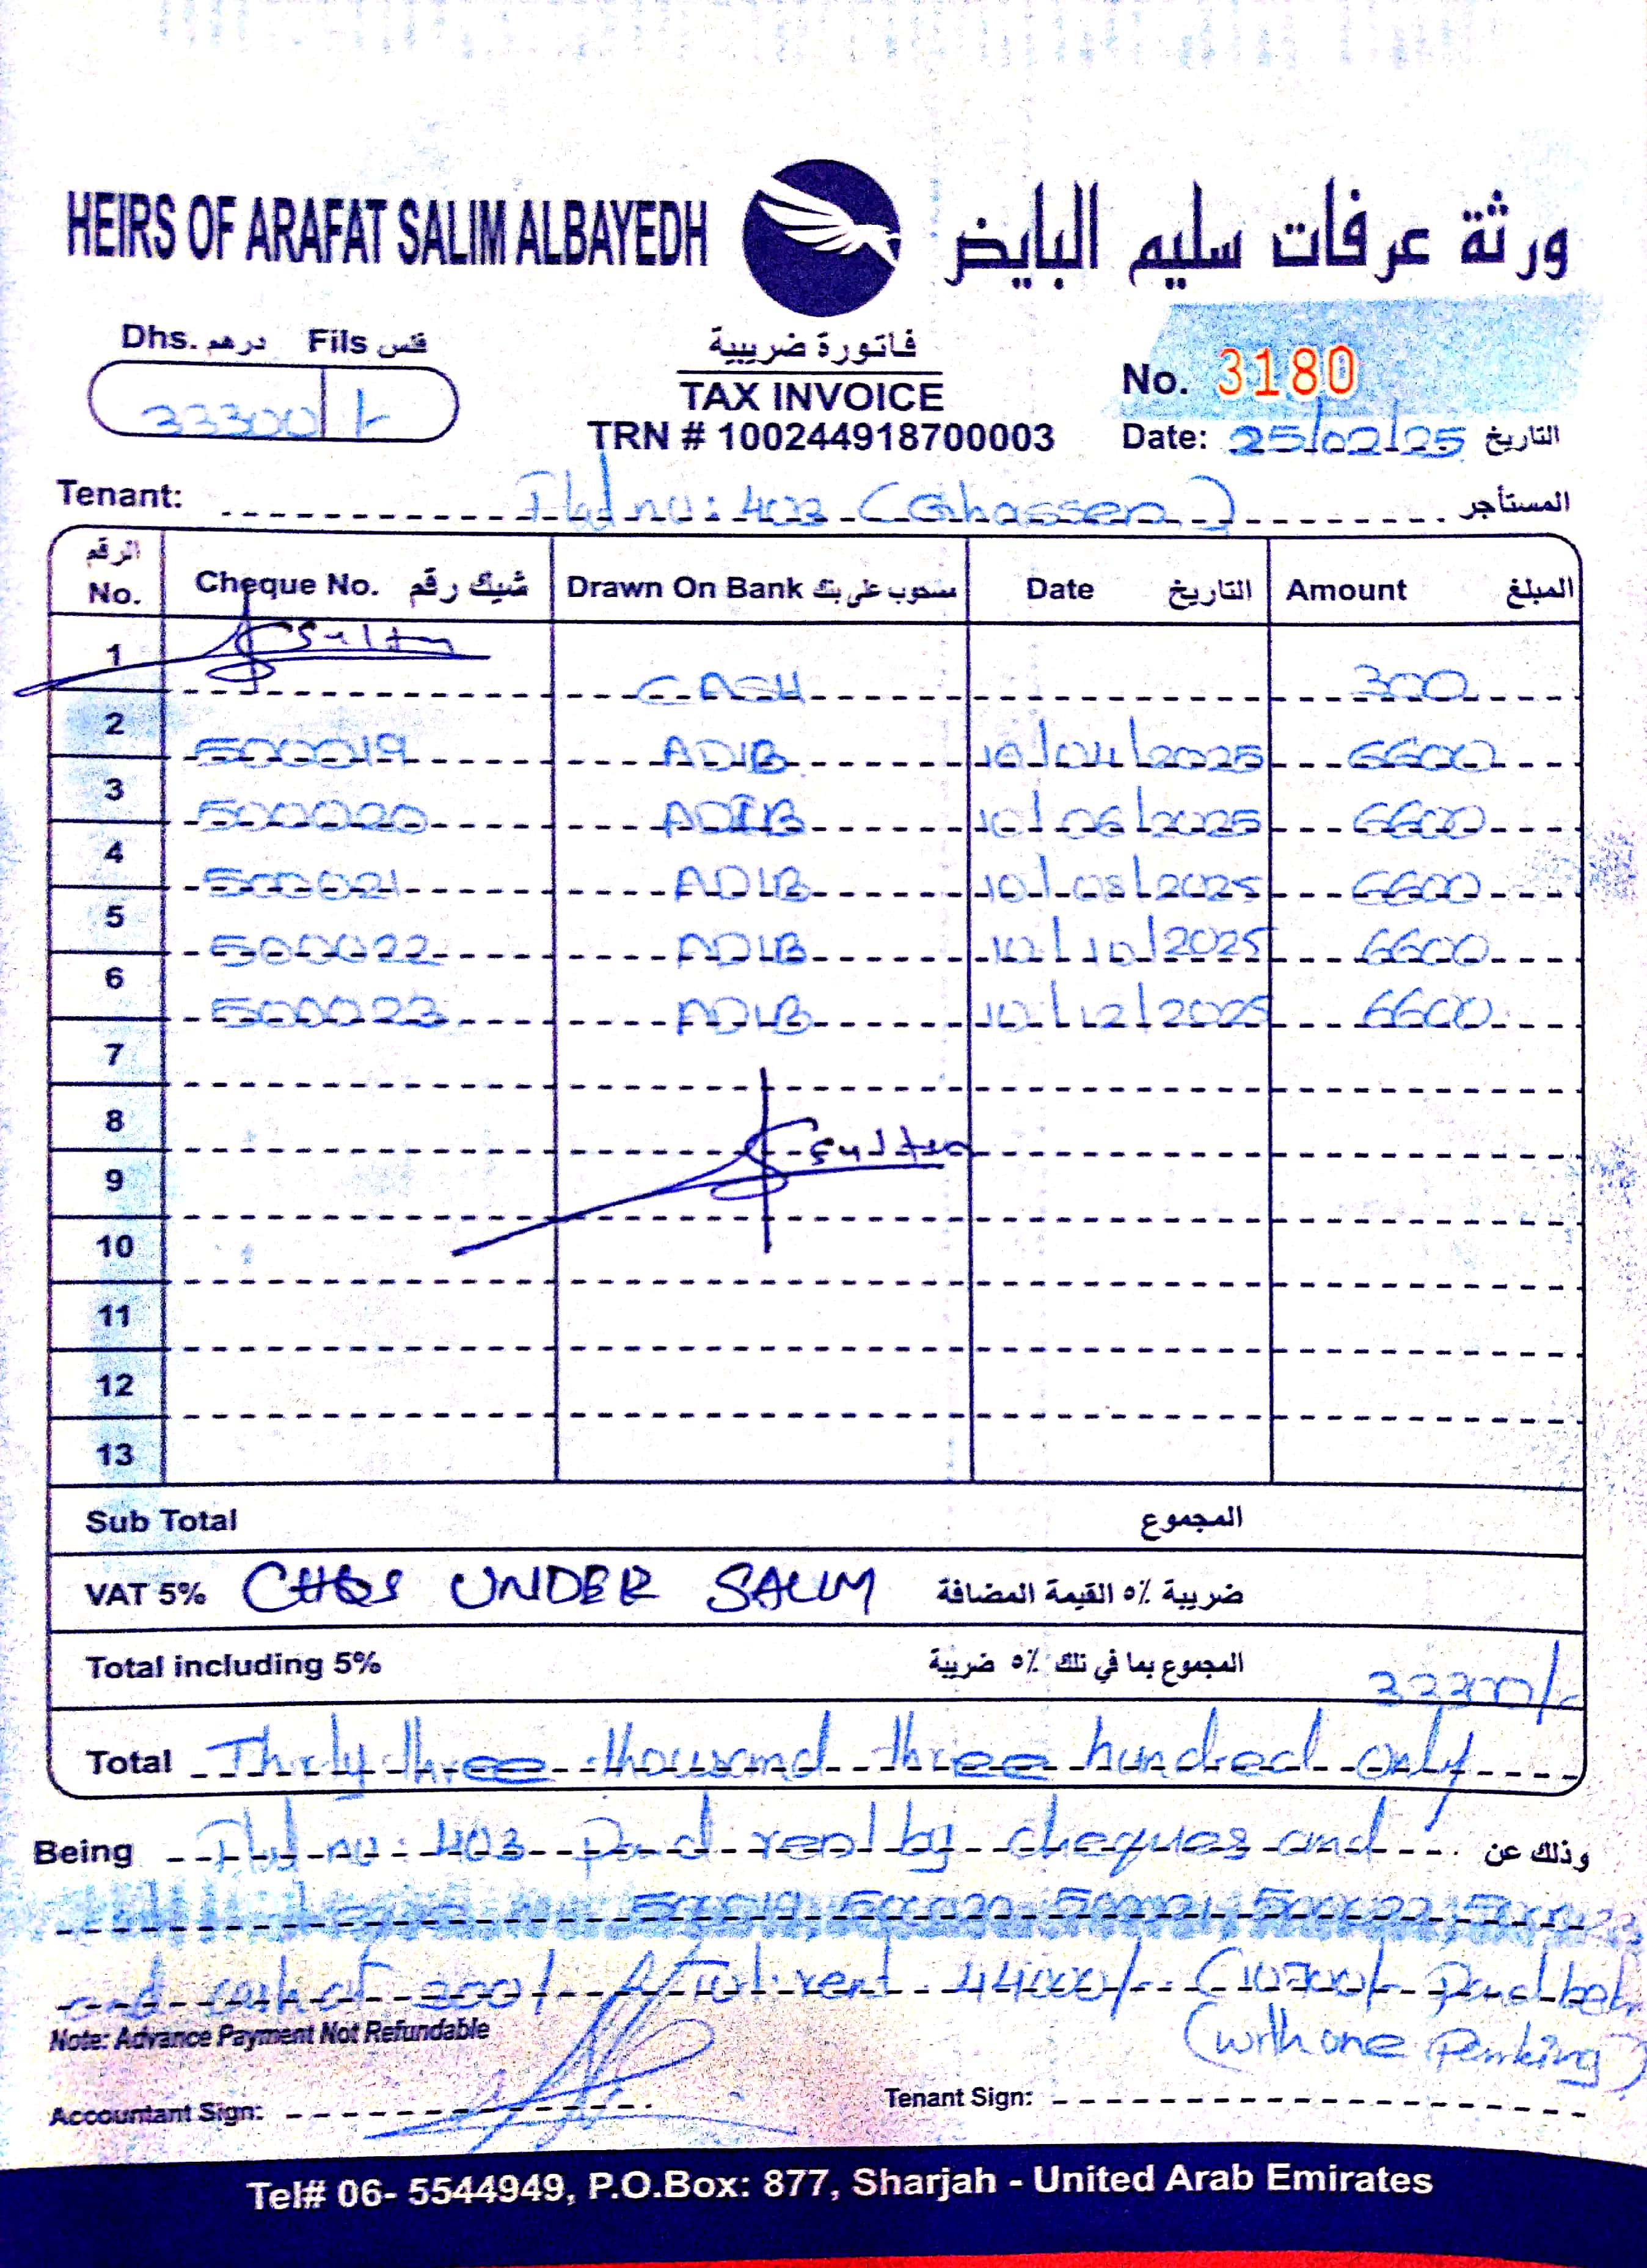 HEIRS OF ARAFAT SALIM ALBAYEDH ورثة عرفات سليم البايض
Dhs. درهم Fils فلس
33300 /-
فاتورة ضريبية
TAX INVOICE
TRN # 100244918700003
No. 3180
Date: 25/02/25 التاريخ
Tenant: Flat no: 403 (Ghassen) المستأجر
الرقم No. Cheque No. شيك رقم Drawn On Bank مسحوب على بنك Date التاريخ Amount المبلغ
1 CASH 300
2 500019 ADIB 10/04/2025 6600
3 500020 ADIB 10/06/2025 6600
4 500021 ADIB 10/08/2025 6600
5 500022 ADIB 10/10/2025 6600
6 500023 ADIB 10/12/2025 6600
7
8
9
10
11
12
13
Sub Total المجموع
VAT 5% CHQS UNDER SALIM ضريبة ٥٪ القيمة المضافة
Total including 5% المجموع بما في تلك ٥٪ ضريبة 33300/-
Total Thirty three thousand three hundred only
Being Flat no: 403 Paid rent by cheques and وذلك عن
500019, 500020, 500021, 500022, 500023
and cash of 300/- Tot. rent 44000/- (10700/- Paid
(with one Parking)
Note: Advance Payment Not Refundable
Accountant Sign: Tenant Sign:
Tel# 06- 5544949, P.O.Box: 877, Sharjah - United Arab Emirates